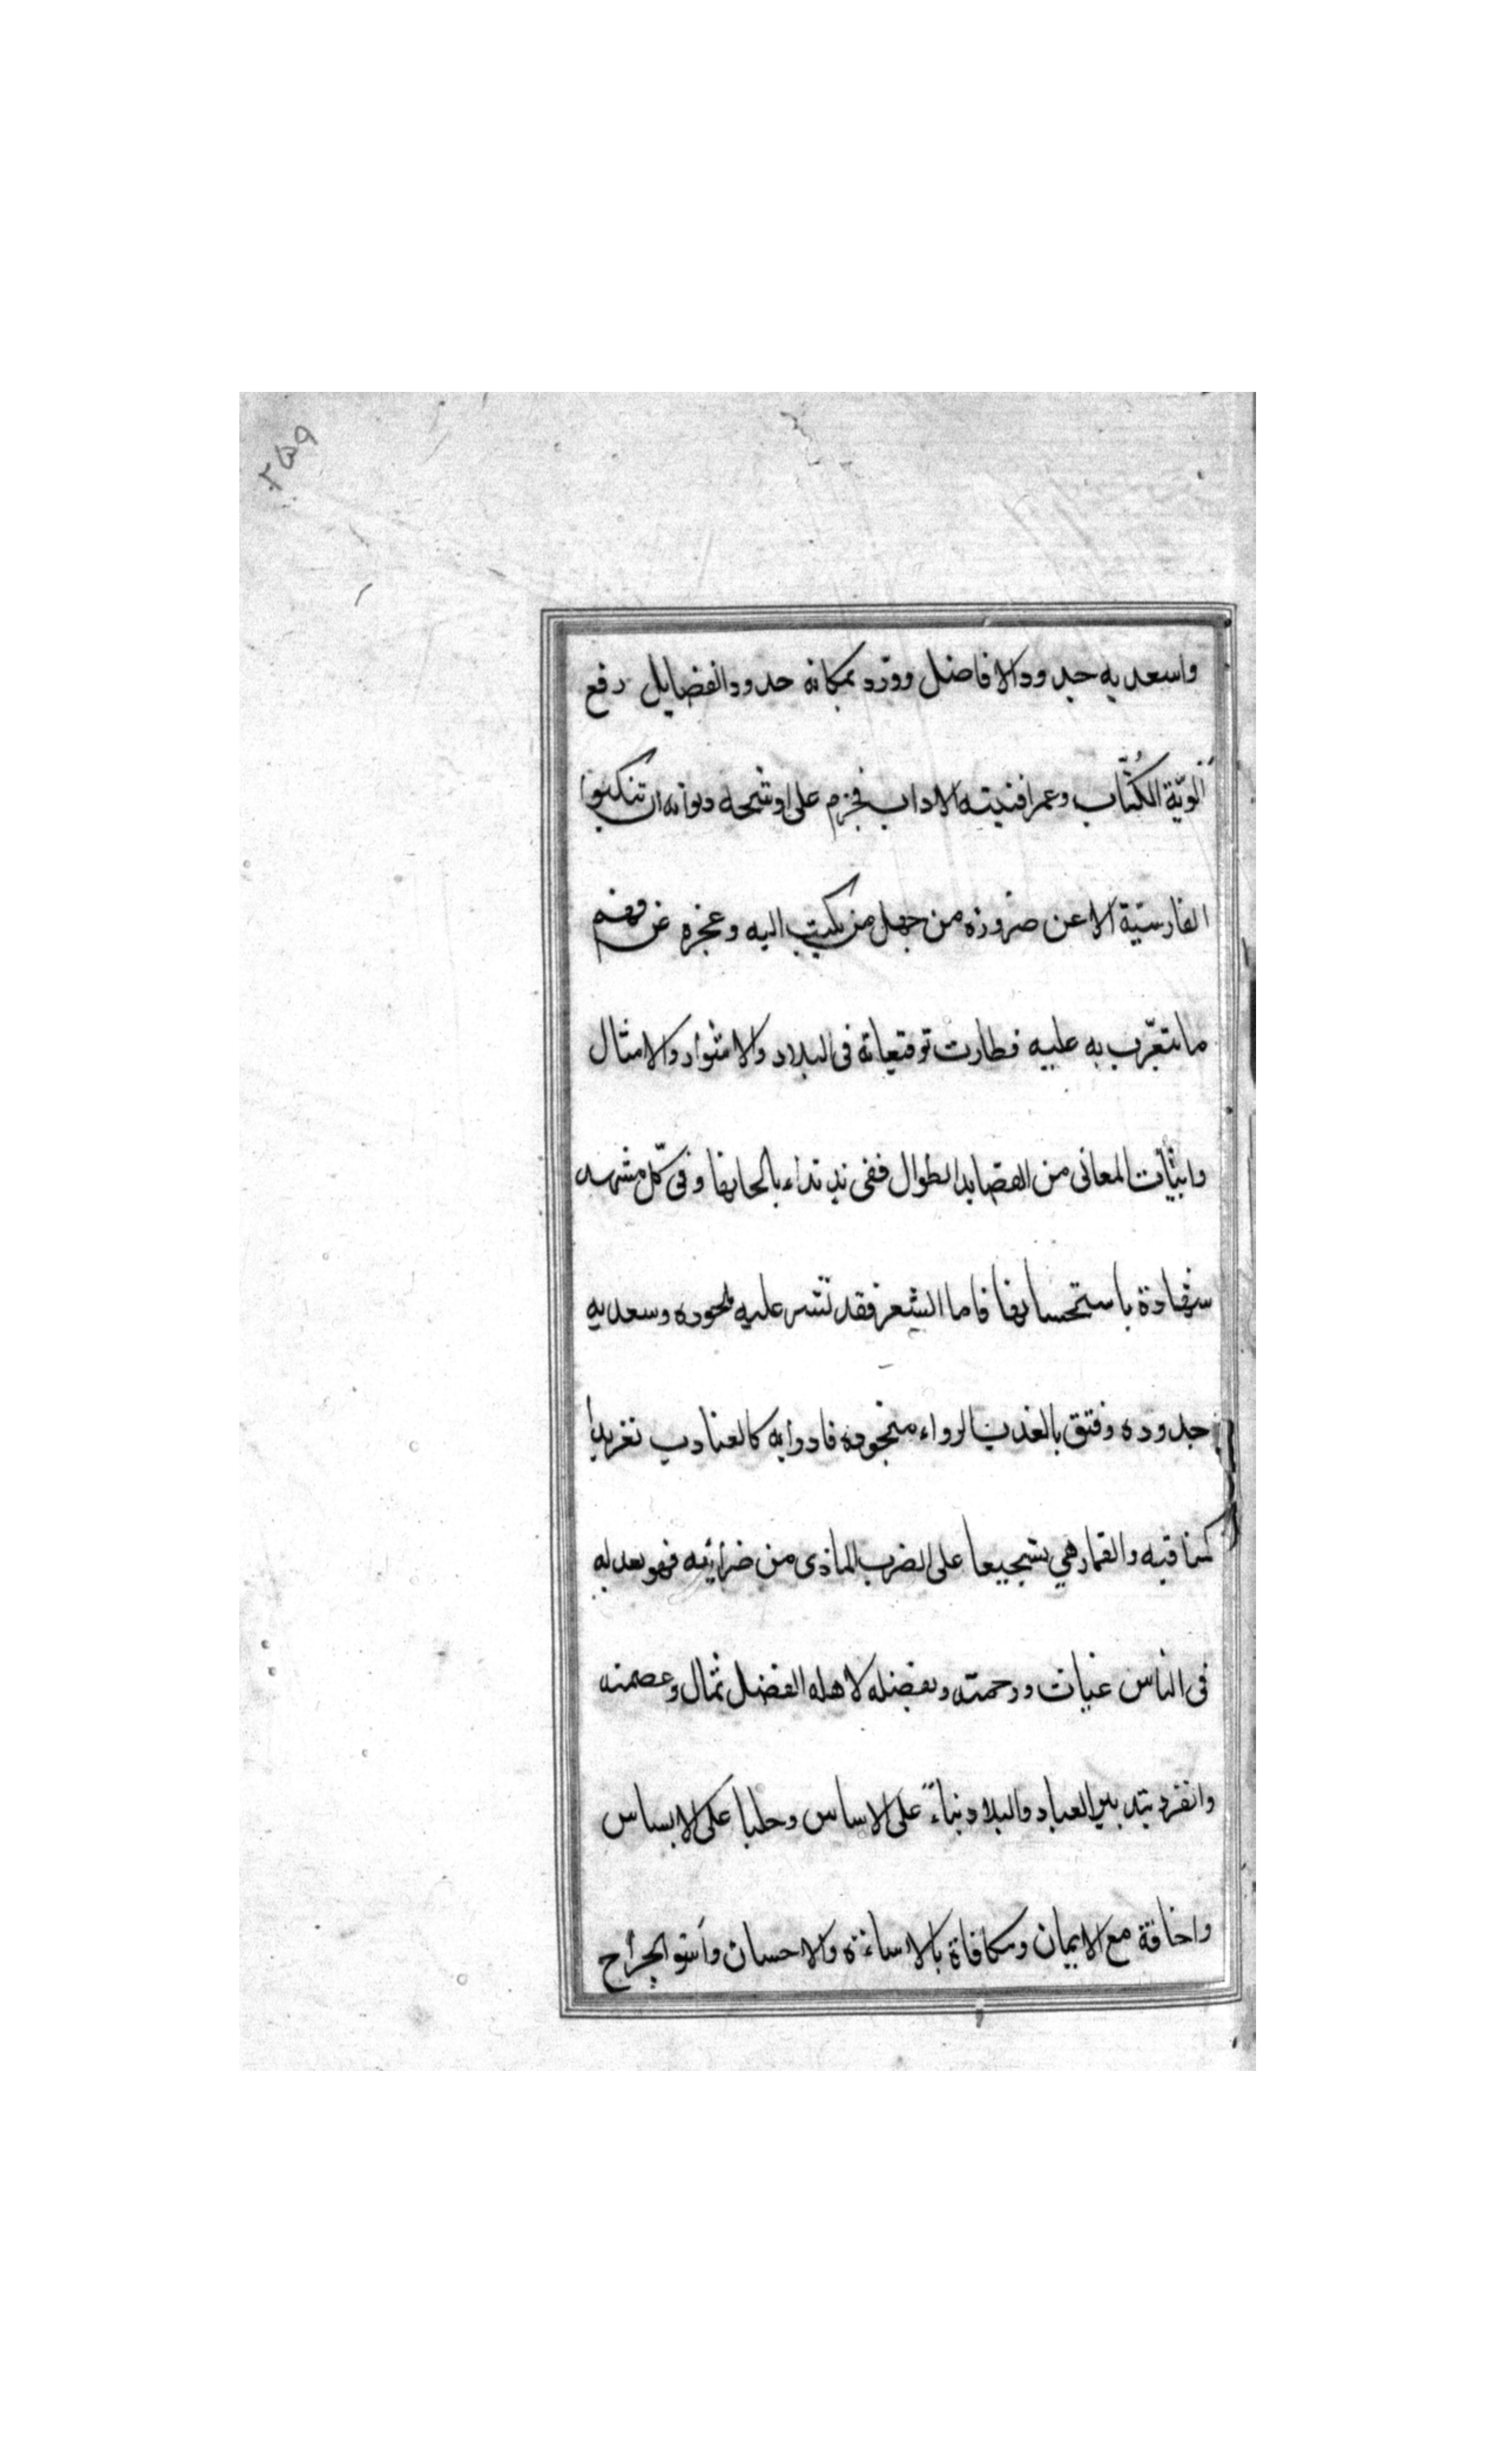 ٢٥٩
واسعد به جدود الافاضل وورّد بمكانه خدود الفضايل رفع
الويّة الكُتّاب وعمر افنيته الاداب فجزم على اوشحه ديوانه ان تنكبوا
الفارسيّة الا عن ضرورة من جهل من يكتب اليه وعجزه عن فهم
ما يتعرّب به عليه فطارت توقيعاته فى البلاد والامثوار والامثال
وابيّات المعانى من القصايد الطوال ففى ند نداء بالحانها وفى كلّ مشهد
شهادة باستحسانها فاما الشعر فقد تيسر عليه بجوده وسعد به
جدوده وفتق بالعذب الرواء منجوده فادوايه كالعنادب تغريدا
لمناقبه والقمارهي تشجيعا على الضرب الماذى من ضرايبه فهو بعد له
فى الناس غياث ورحمته وبفضله لاهله الفضل ثمال وعصمته
وانفرد بتد بير العباد والبلاد بناءً على الاساس وحلبا على الابساس
واخافة مع الايمان ومكافاة بالاساءة والاحسان واسو الجراح